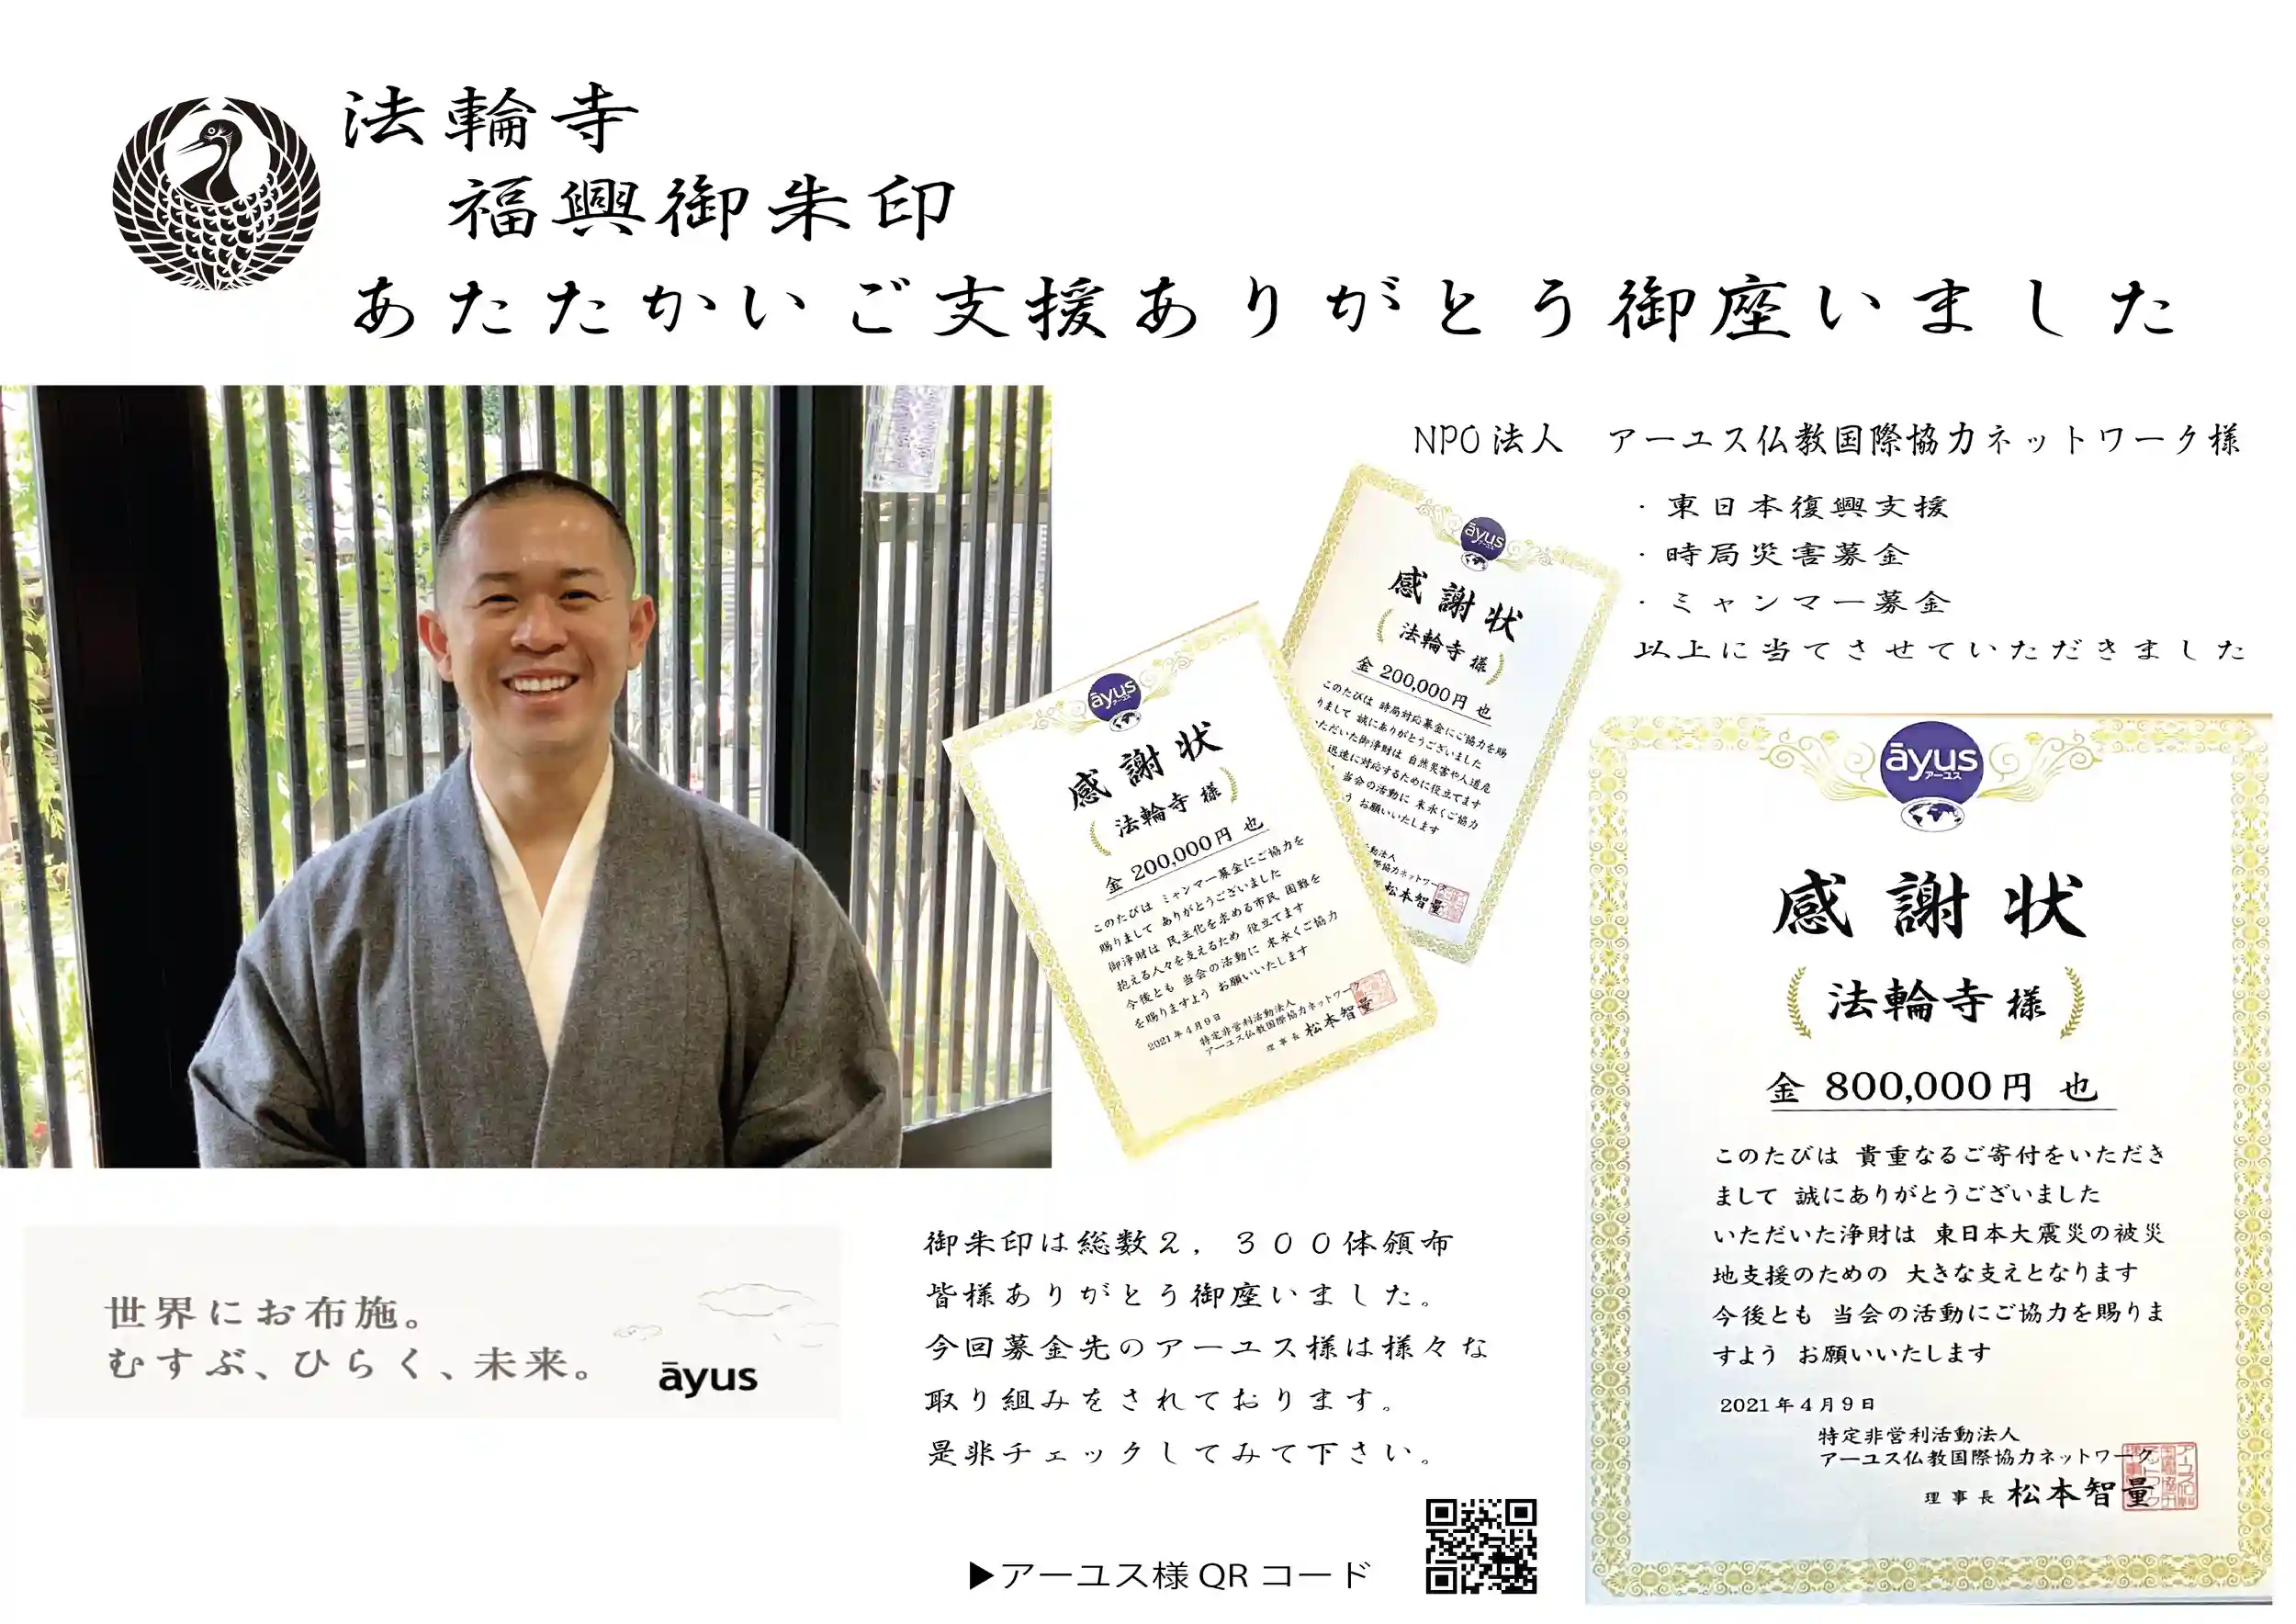 法輪寺
福興御朱印
あたたかいご支援ありがとう御座いました
NPO法人　アーユス仏教国際協力ネットワーク様
・東日本復興支援
・時局災害募金
・ミャンマー募金
以上に当てさせていただきました
āyus
アーユス
感謝状
法輪寺 様
金 200,000円 也
このたびは 時局対応募金にご協力を賜
りまして 誠にありがとうございました
いただいた御浄財は 自然災害や人道危
迅速に対応するために役立てます
当会の活動に 末永くご協力
う お願いいたします
動法人
際協力ネットワーク
松本智量
āyus
アーユス
感謝状
法輪寺 様
金 200,000円 也
このたびは ミャンマー募金にご協力を
賜りまして ありがとうございました
御浄財は 民主化を求める市民 困難を
抱える人々を支えるため 役立てます
今後とも 当会の活動に 末永くご協力
を賜りますよう お願いいたします
2021年4月9日
特定非営利活動法人
アーユス仏教国際協力ネットワーク
理事長 松本智量
āyus
アーユス
感謝状
法輪寺 様
金 800,000円 也
このたびは 貴重なるご寄付をいただき
まして 誠にありがとうございました
いただいた浄財は 東日本大震災の被災
地支援のための 大きな支えとなります
今後とも 当会の活動にご協力を賜りま
すよう お願いいたします
2021年4月9日
特定非営利活動法人
アーユス仏教国際協力ネットワーク
理事長 松本智量
世界にお布施。
むすぶ、ひらく、未来。
āyus
御朱印は総数２，３００体頒布
皆様ありがとう御座いました。
今回募金先のアーユス様は様々な
取り組みをされております。
是非チェックしてみて下さい。
▶アーユス様QRコード